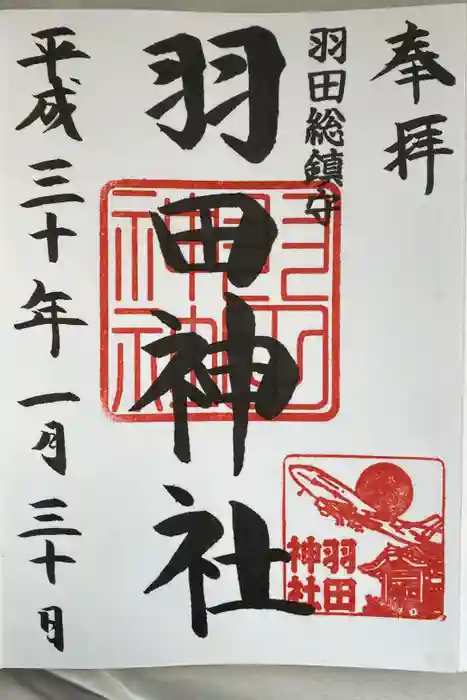 奉拝
羽田総鎮守
羽田神社
平成三十年一月三十日
羽田神社
羽田
神社